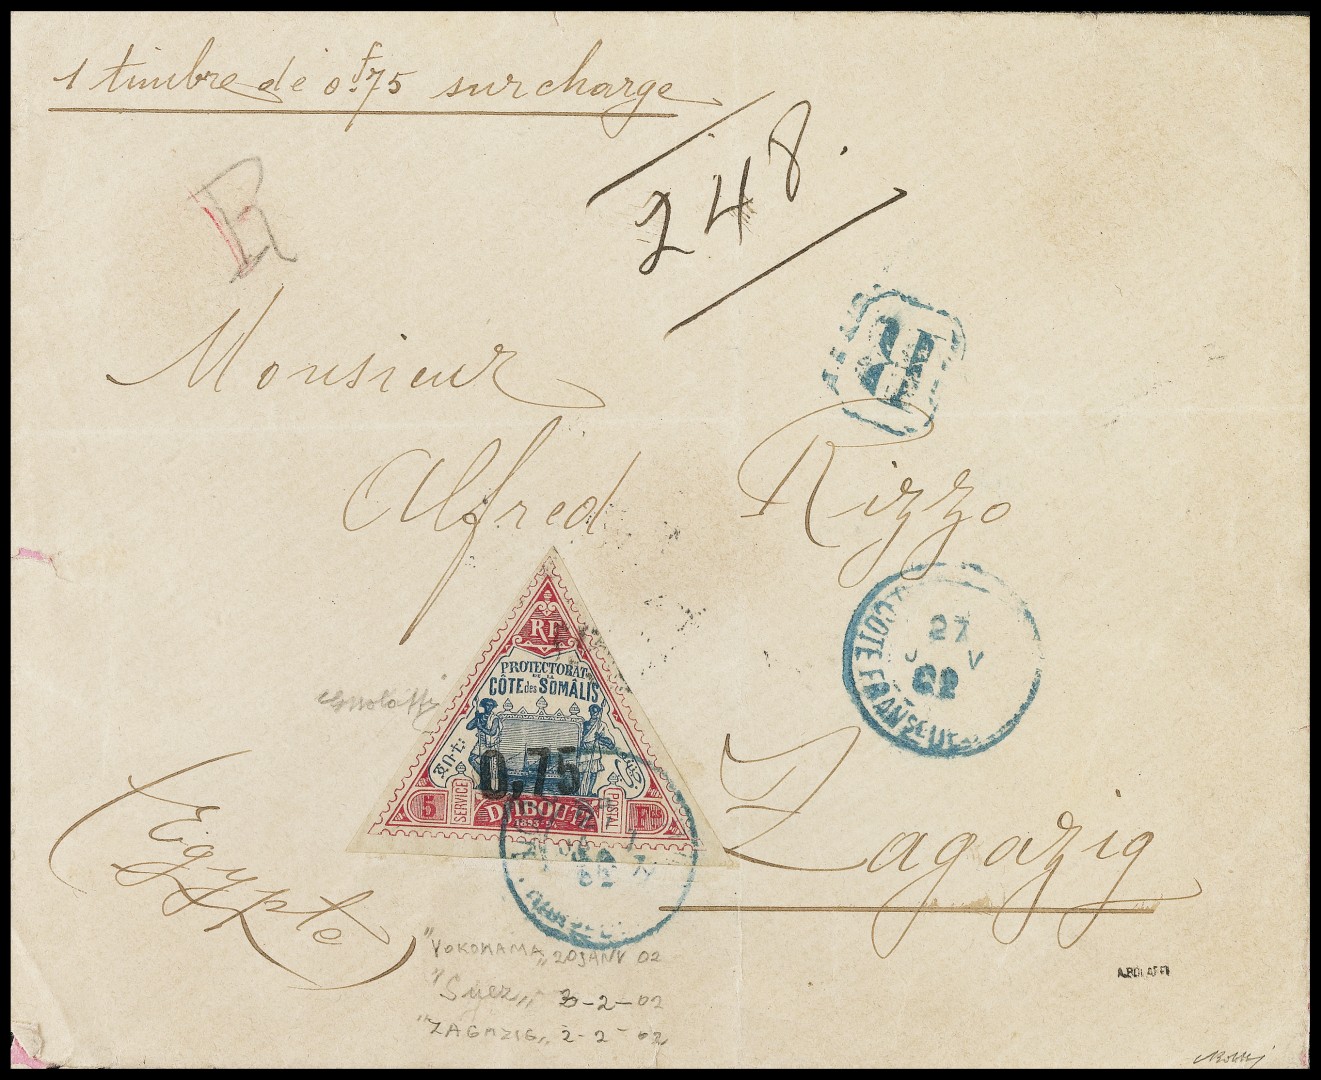 1 timbre de 0f75 surcharge
248.
R
R
Monsieur
Alfred Rizzo
27
COTE FRANSE
02
RF
PROTECTORAT
DE LA
CÔTE des SOMÂLIS
0,75
5 SERVICE DJIBOUTI POSTAL Fcs
1893-94
Zagazig
(Egypte)
"YOKOHAMA„ 20 JANV 02
"Suez„ 3-2-02
"ZAGAZIG„ 2-2-02
A.BOLAFFI